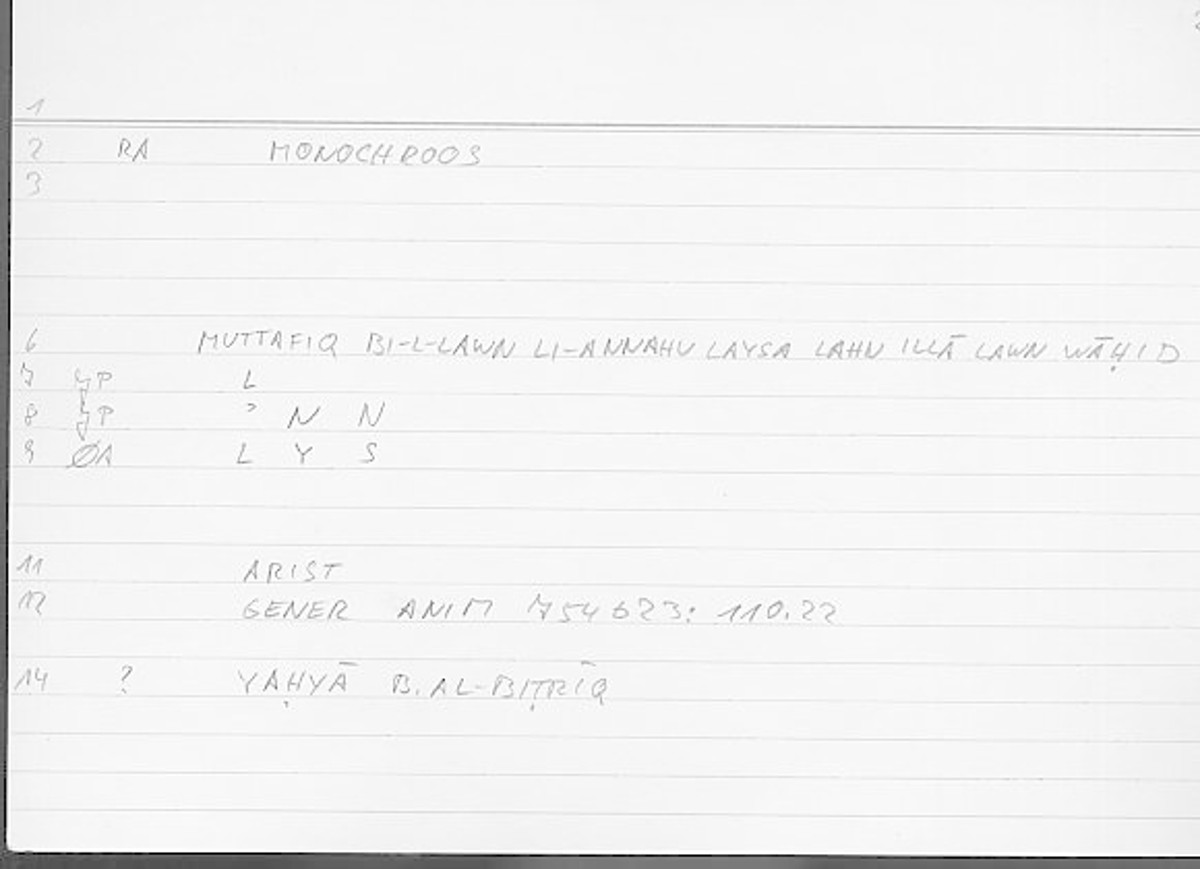 1
2 RA MONOCHROOS
3
6 MUTTAFIQ BI-L-LAWN LI-ANNAHU LAYSA LAHN ILLĀ LAWN WĀḤID
7 P L
8 P ʾ N N
9 ØA L Y S
11 ARIST
12 GENER ANIM 754b23: 110.22
14 ? YAḤYĀ B. AL-BIṬRĪQ